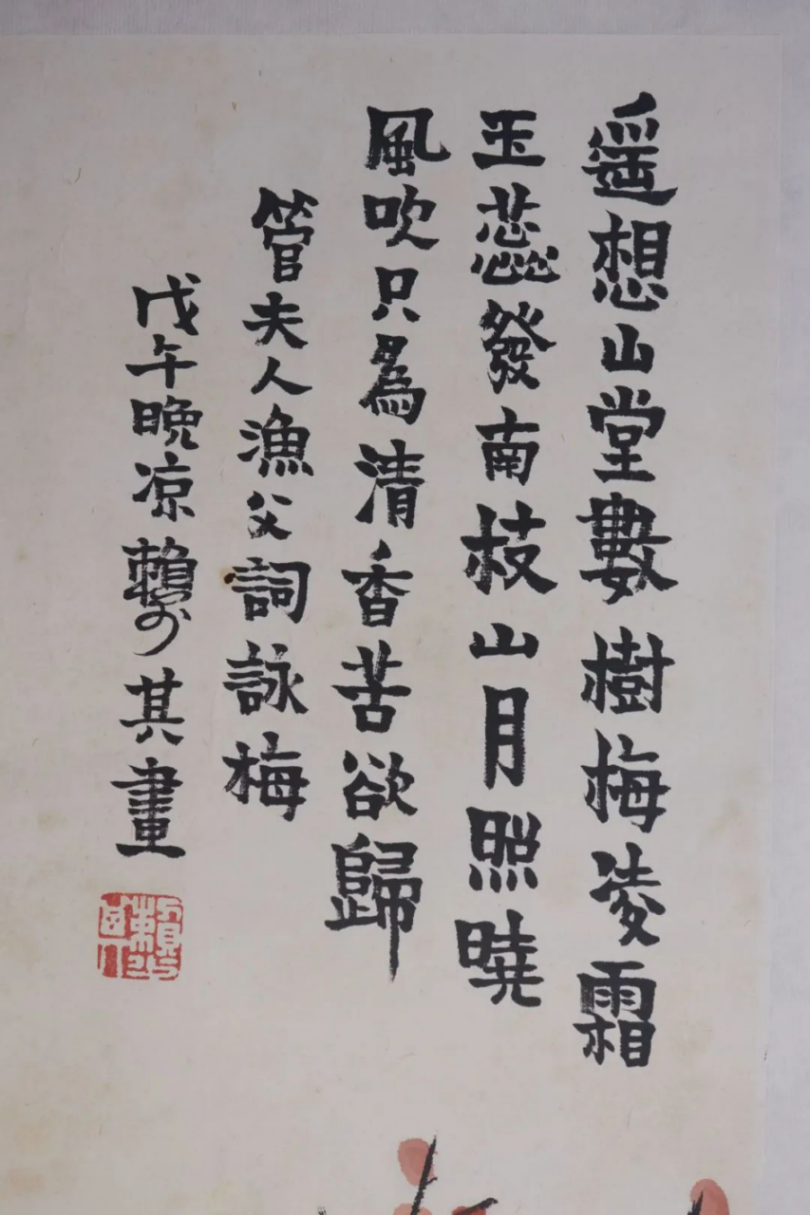 遥想山堂數樹梅凌霜
玉蕊發南枝山月照曉
風吹只為清香苦欲歸
管夫人漁父詞詠梅
戊午晚凉賴少其畫